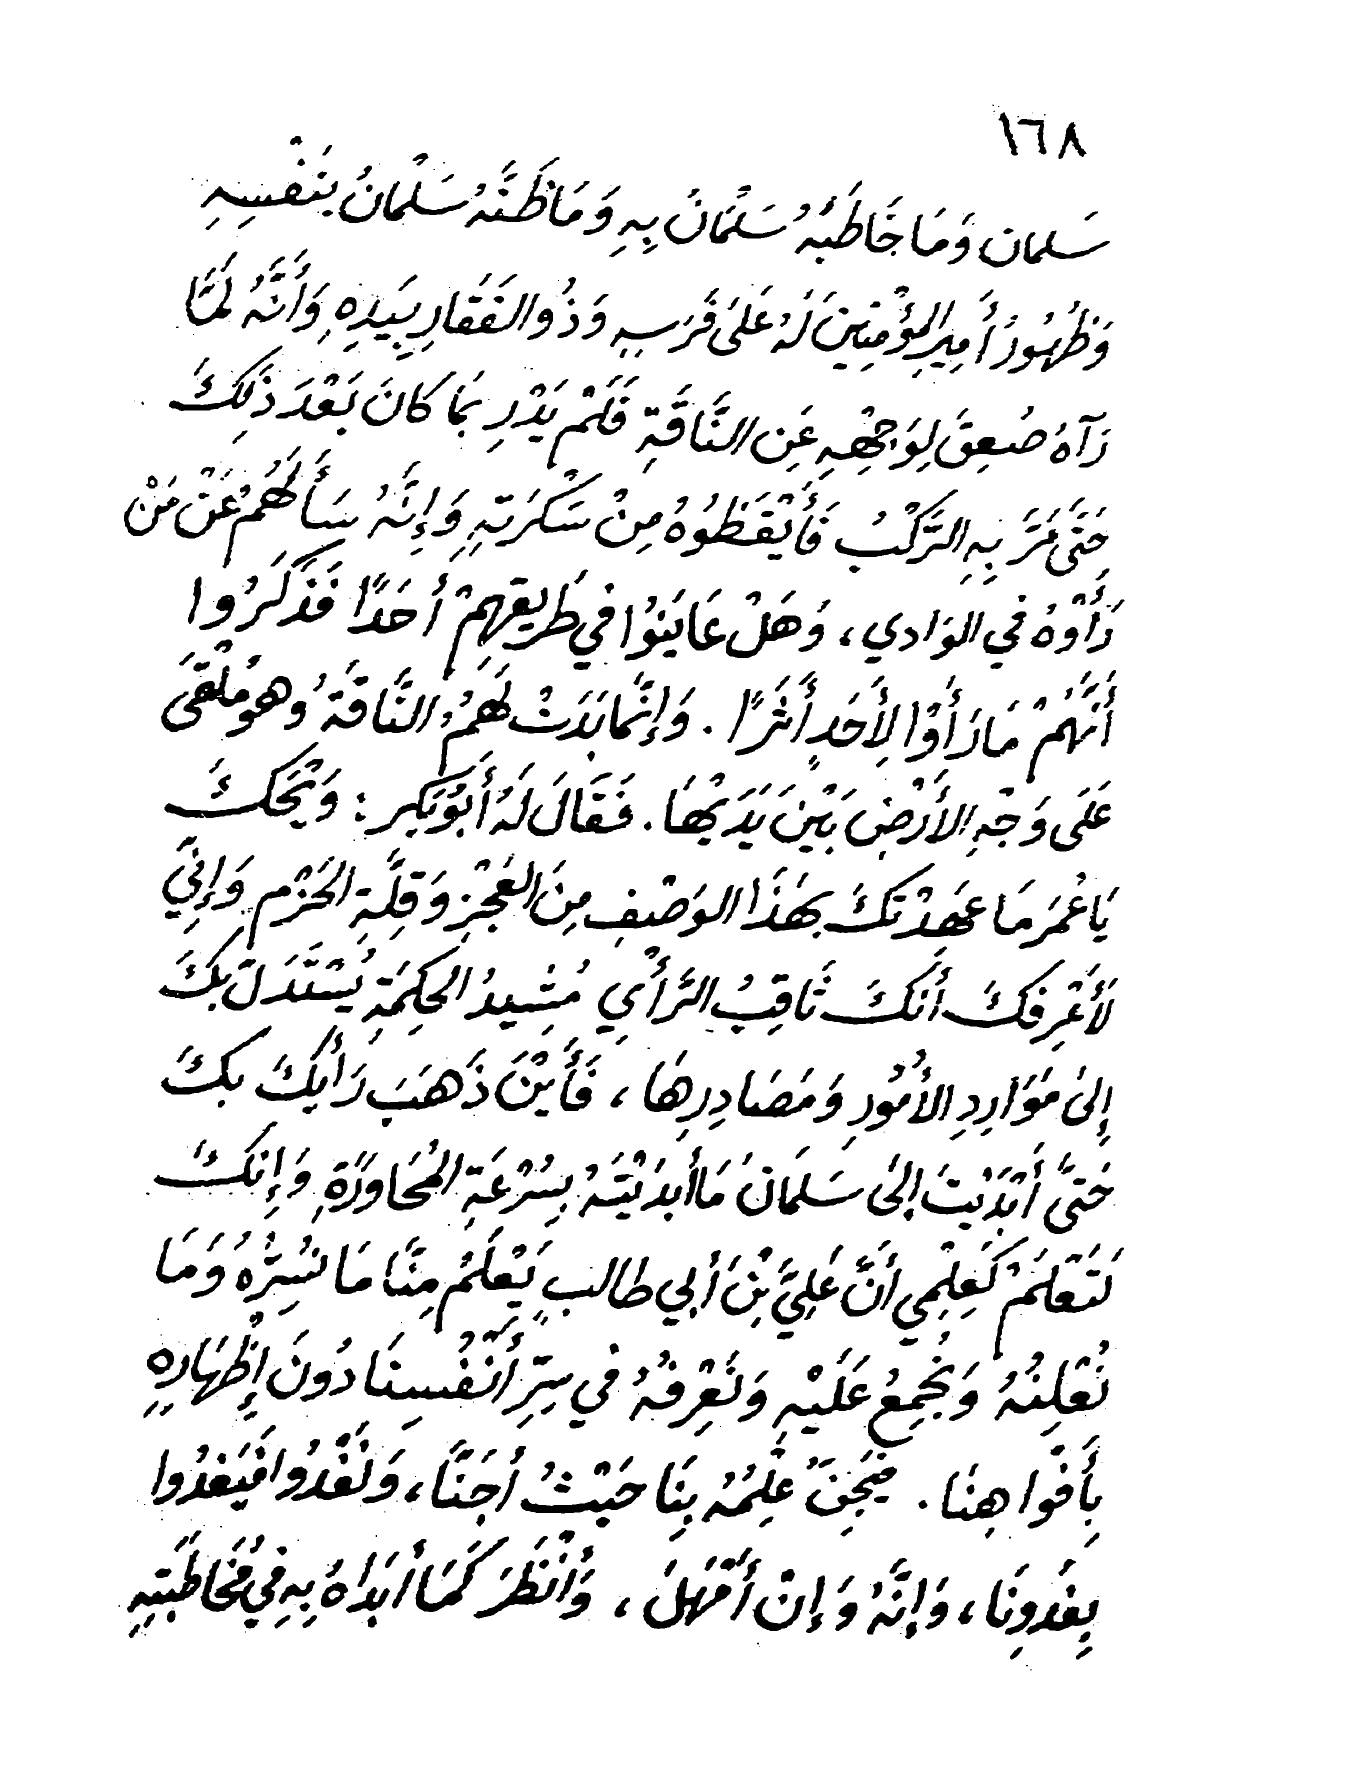 ١٦٨
سَلمان وَمَا خَاطَبَهُ سَلْمَانُ بِهِ وَمَا ظَنَّهُ سَلْمَانُ بِنَفْسِهِ
وَظُهُورُ أَمِيرِ المُؤْمِنِينَ لَهُ عَلَى فَرَسِهِ وَذُو الفَقَارِ بِيَدِهِ وَأَنَّهُ لَمَّا
رَآهُ صُعِقَ لِوَجْهِهِ عَنِ النَّاقَةِ فَلَمْ يَدْرِ بِمَا كَانَ بَعْدَ ذَلِكَ
حَتَّى مَرَّ بِهِ الرَّكْبُ فَأَيْقَظُوهُ مِنْ سَكْرَتِهِ وَإِنَّهُ سَأَلَهُمْ عَنْ مَنْ
رَأَوْهُ فِي الوَادِي، وَهَلْ عَايَنُوا فِي طَرِيقِهِمْ أَحَدًا فَذَكَرُوا
أَنَّهُمْ مَا رَأَوْا لِأَحَدٍ أَثَرًا. وَإِنَّمَا بَدَتْ لَهُمُ النَّاقَةُ وَهُو مُلْقَى
عَلَى وَجْهِ الأَرْضِ بَيْنَ يَدَيْهَا. فَقَالَ لَهُ أَبُو بَكِر: وَيْحَكَ
يَا عُمَر مَا عَهِدْتكَ بِهَذَا الوَصْفِ مِنَ العَجْزِ وَقِلَّةِ الحَزْمِ وَإِنِّي
لَأَعْرِفكَ أَنَكَ ثَاقِبُ الرَّأْيِ مُشِيدُ الحِكِمَةِ يُسْتَدَلّ بكَ
إِلَى مَوَارِدِ الأُمُورِ وَمَصَادِرِهَا، فَأَيْنَ ذَهَبَ رَأيكَ بكَ
حَتَّى أَبْدَيْتَ إِلَى سَلمَانَ مَا أَبدَيْتَهُ بِسُرْعَةِ المُحَاوَرَةِ وَإِنكَ
لَتَعْلَمْ كَعِلمِي أَنَّ عَلِيَّ بْنَ أَبِي طَالبٍ يَعْلَمُ مِنَّا مَا نُسِرُّهُ وَمَا
نُعْلِنُهُ وَنُجْمِعُ عَلَيْهِ وَنَعْرِفُهُ فِي سِرِّ أَنْفُسِنَا دُونَ إِظْهَارِهِ
بِأَفْوَاهِنَا. فَيَجِنّ عِلْمُهُ بِنَا حَيْثُ أَجَنَّا، وَنَغْدُوا فَيَغدُوا
بِغدُونَا، وَإِنَّهُ وَإِنْ أَمْهَلَ، وَأَنْظَرَ كَمَا أَبَدَاهُ بِهِ فِي مُخَاطَبَتِهِ